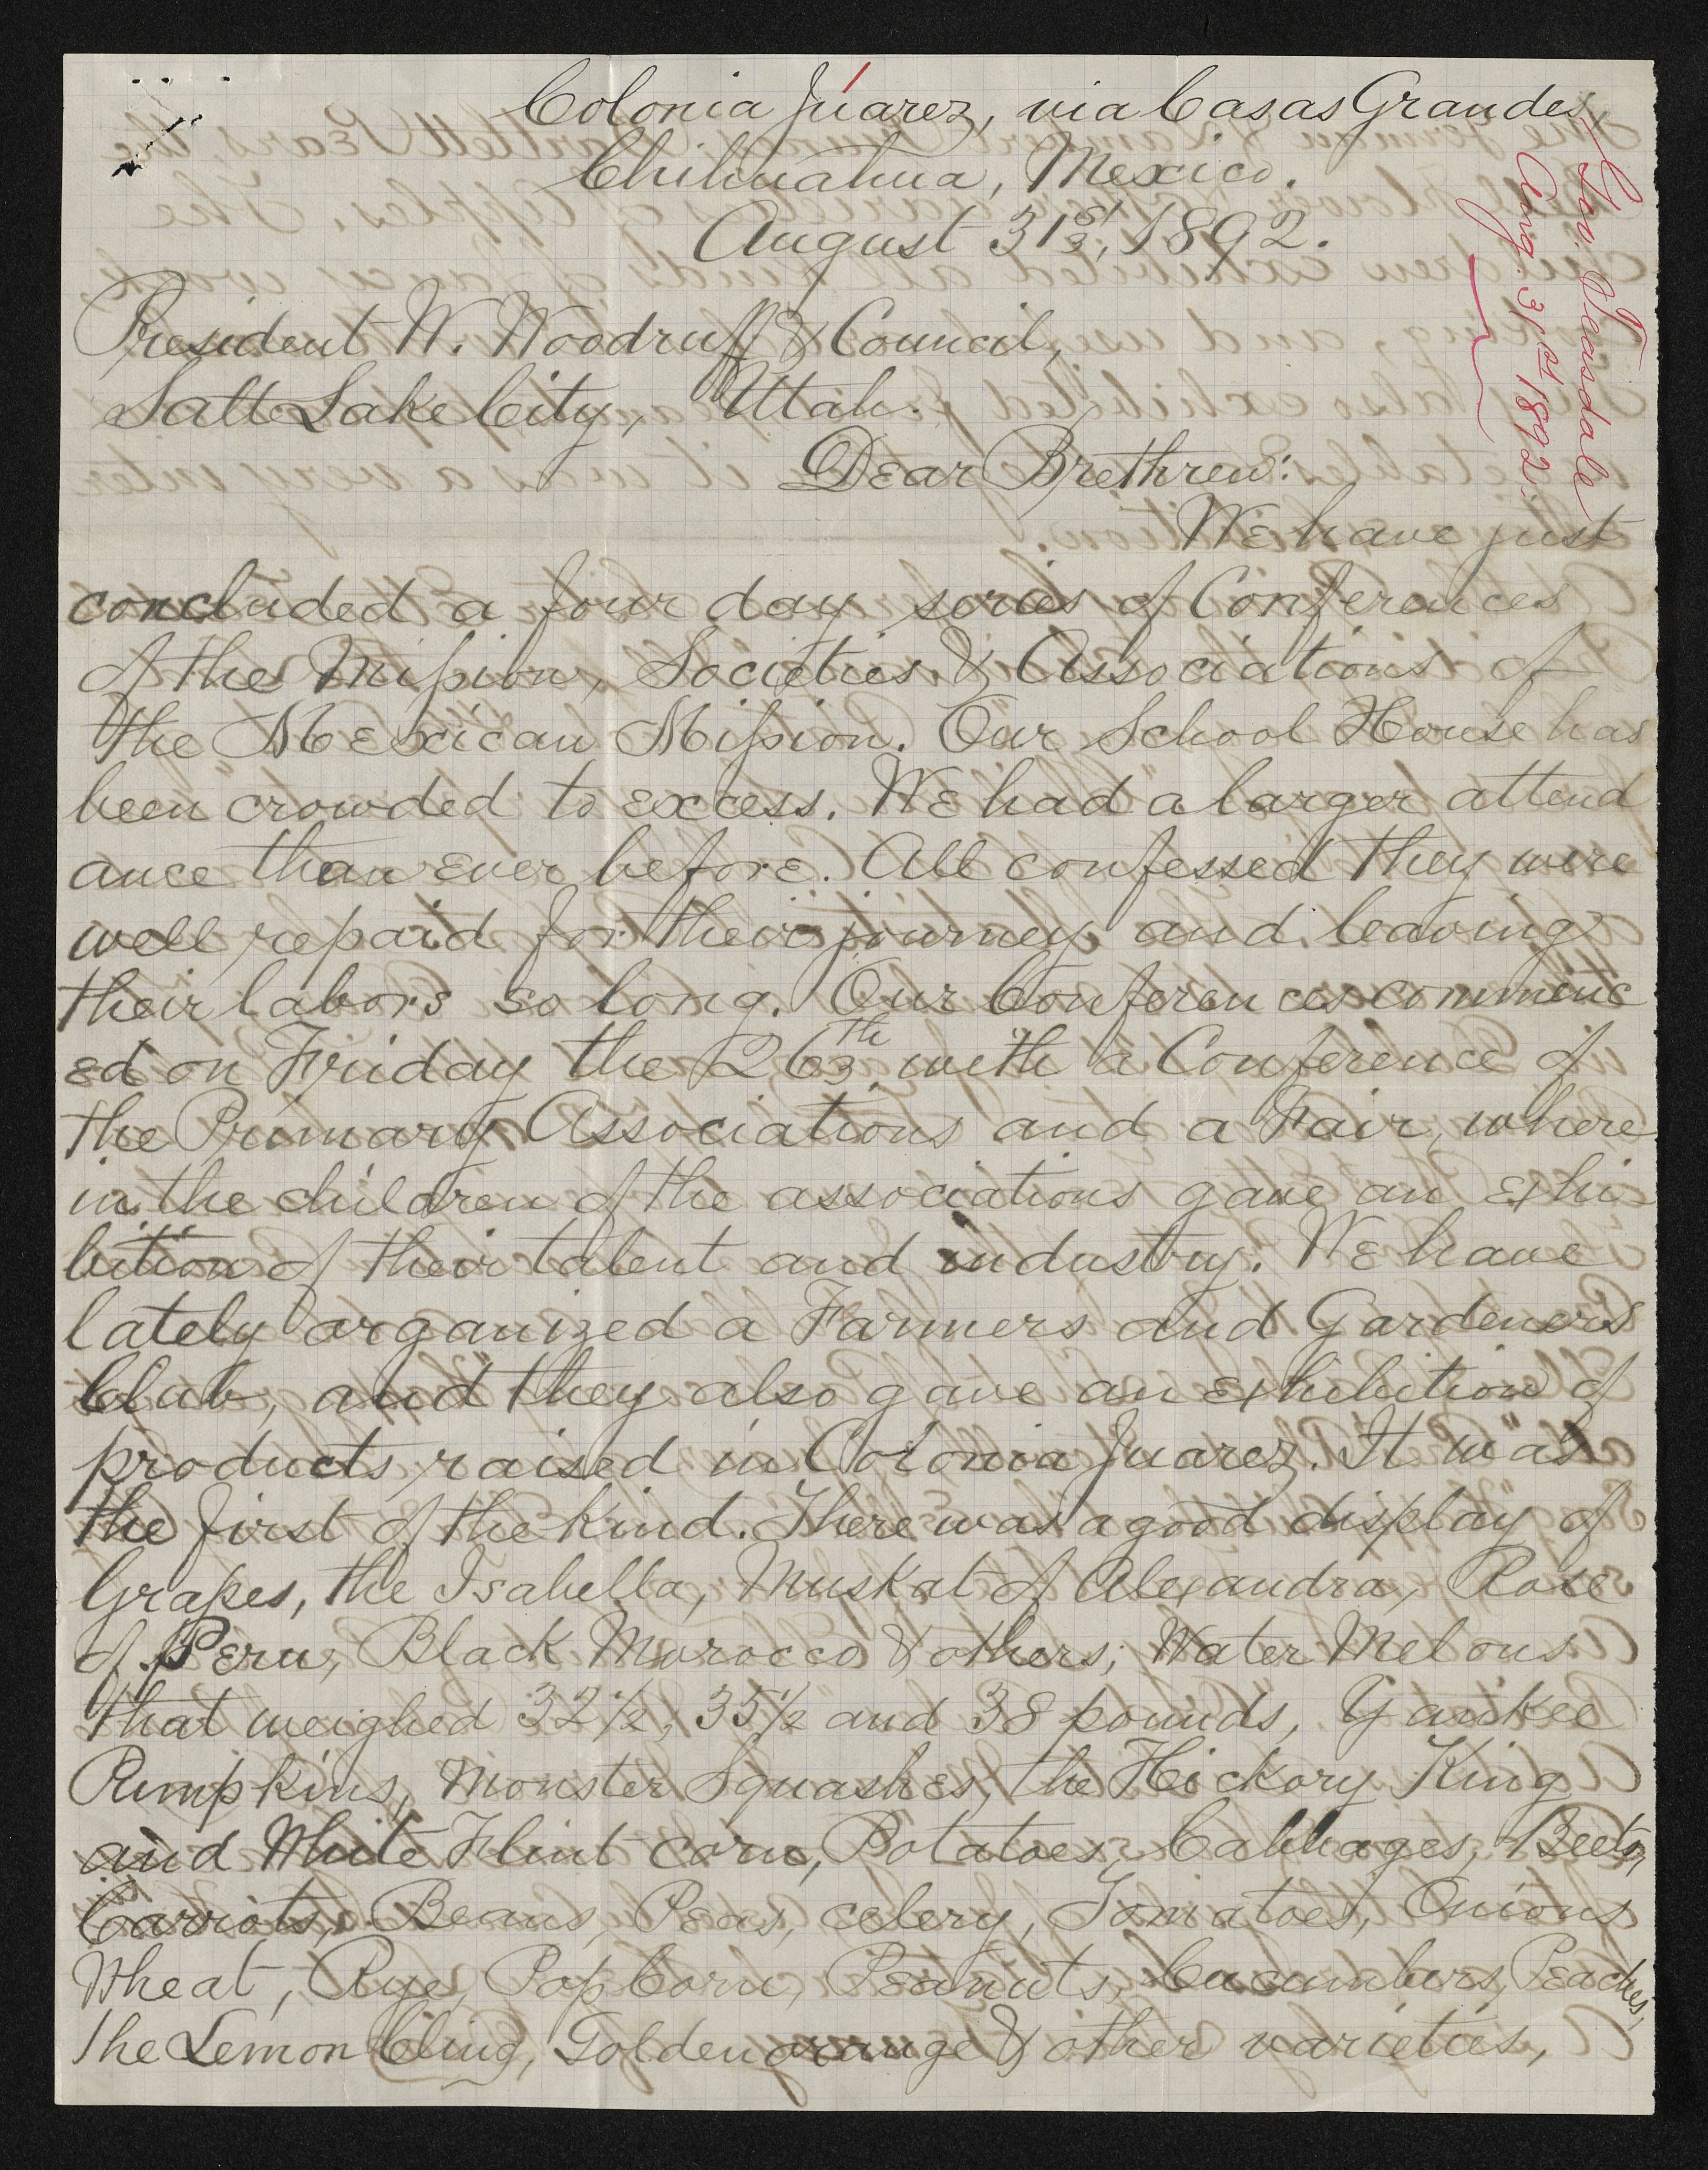 Colonia Júarez, via Casas Grandes,
Chihuahua, Mexico.
August 31st, 1892.
Geo. Teasdale
Aug. 31st 1892.
President W. Woodruff & Council,
Salt Lake City, Utah.
Dear Brethren:
We have just
concluded a four day series of Conferences
of the Mission, Societies & Associations of
the Mexican Mission. Our School House has
been crowded to excess. We had a larger attend
ance than ever before. All confessed they were
well repaid for their journey and leaving
their labors so long. Our Conferences commenc
ed on Friday the 26th with a Conference of
the Primary Associations and a Fair, where
in the children of the associations gave an exhi
bition of their talent and industry. We have
lately organized a Farmers and Gardeners
Club, and they also gave an exhibition of
products raised in Colonia Juarez. It was
the first of the kind. There was a good display of
Grapes, the Isabella, Muskat of Alexandra, Rose
of Peru, Black Morocco & others; Water Melons
that weighed 32 1/2, 35 1/2 and 38 pounds, Yankee
Pumpkins, Monster Squashes, the Hickory King
and White Flint corn, Potatoes, Cabbages, Beets,
Carriots, Beans, Peas, celery, Tomatoes, Onions
Wheat, Rye, Pop Corn, Peanuts, Cucumbers, Peaches,
The Lemon Cling, Golden orange & other varieties,